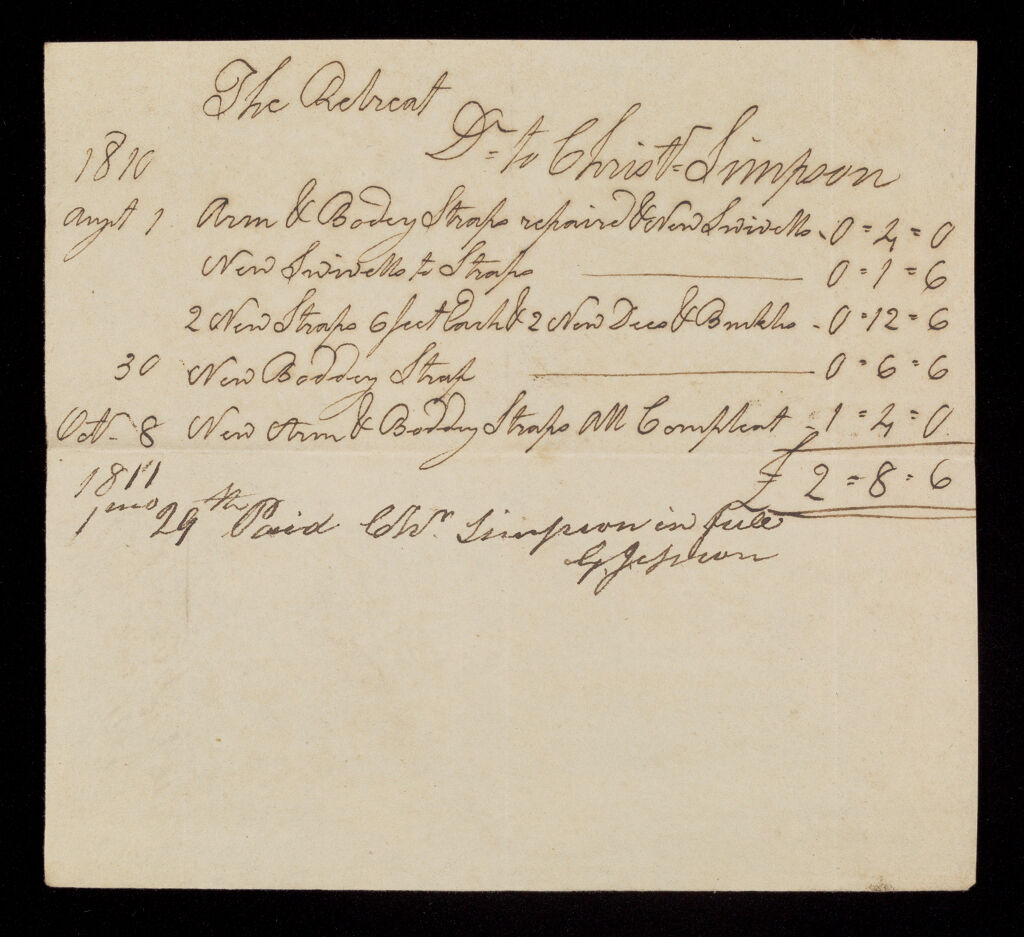 The Retreat
Dr to Christr Simpson
1810
Augst 1 Arm & Bodey Straps repaired & New Swivells - 0 = 4 = 0
New Swivells to Straps 0 = 1 = 6
2 New Straps 6 feet Each & 2 New Dees & Buckls - 0 = 12 = 6
30 New Boddey Strap 0 = 6 = 6
Oct - 8 New Arm & Boddey Straps All Compleat - 1 = 4 = 0
£ 2 = 8 = 6
1811
1 mo 29th Paid Chr. Simpson in full
G. Jepson